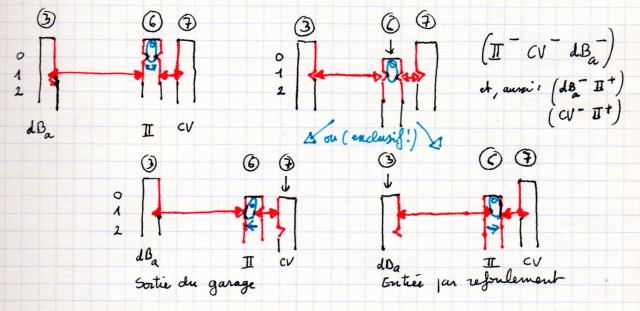 ③ ⑥ ⑦
0
1
2
dBa II CV
③ ⑥ ⑦
0
1
2
ou (exclusif!)
(II⁻ CV⁻ dBa⁻)
et, aussi: (dBa⁻ II⁺)
(CV⁻ II⁺)
③ ⑥ ⑦
0
1
2
dBa II CV
Sortie du garage
③ ⑥ ⑦
dBa II CV
Entrée par refoulement